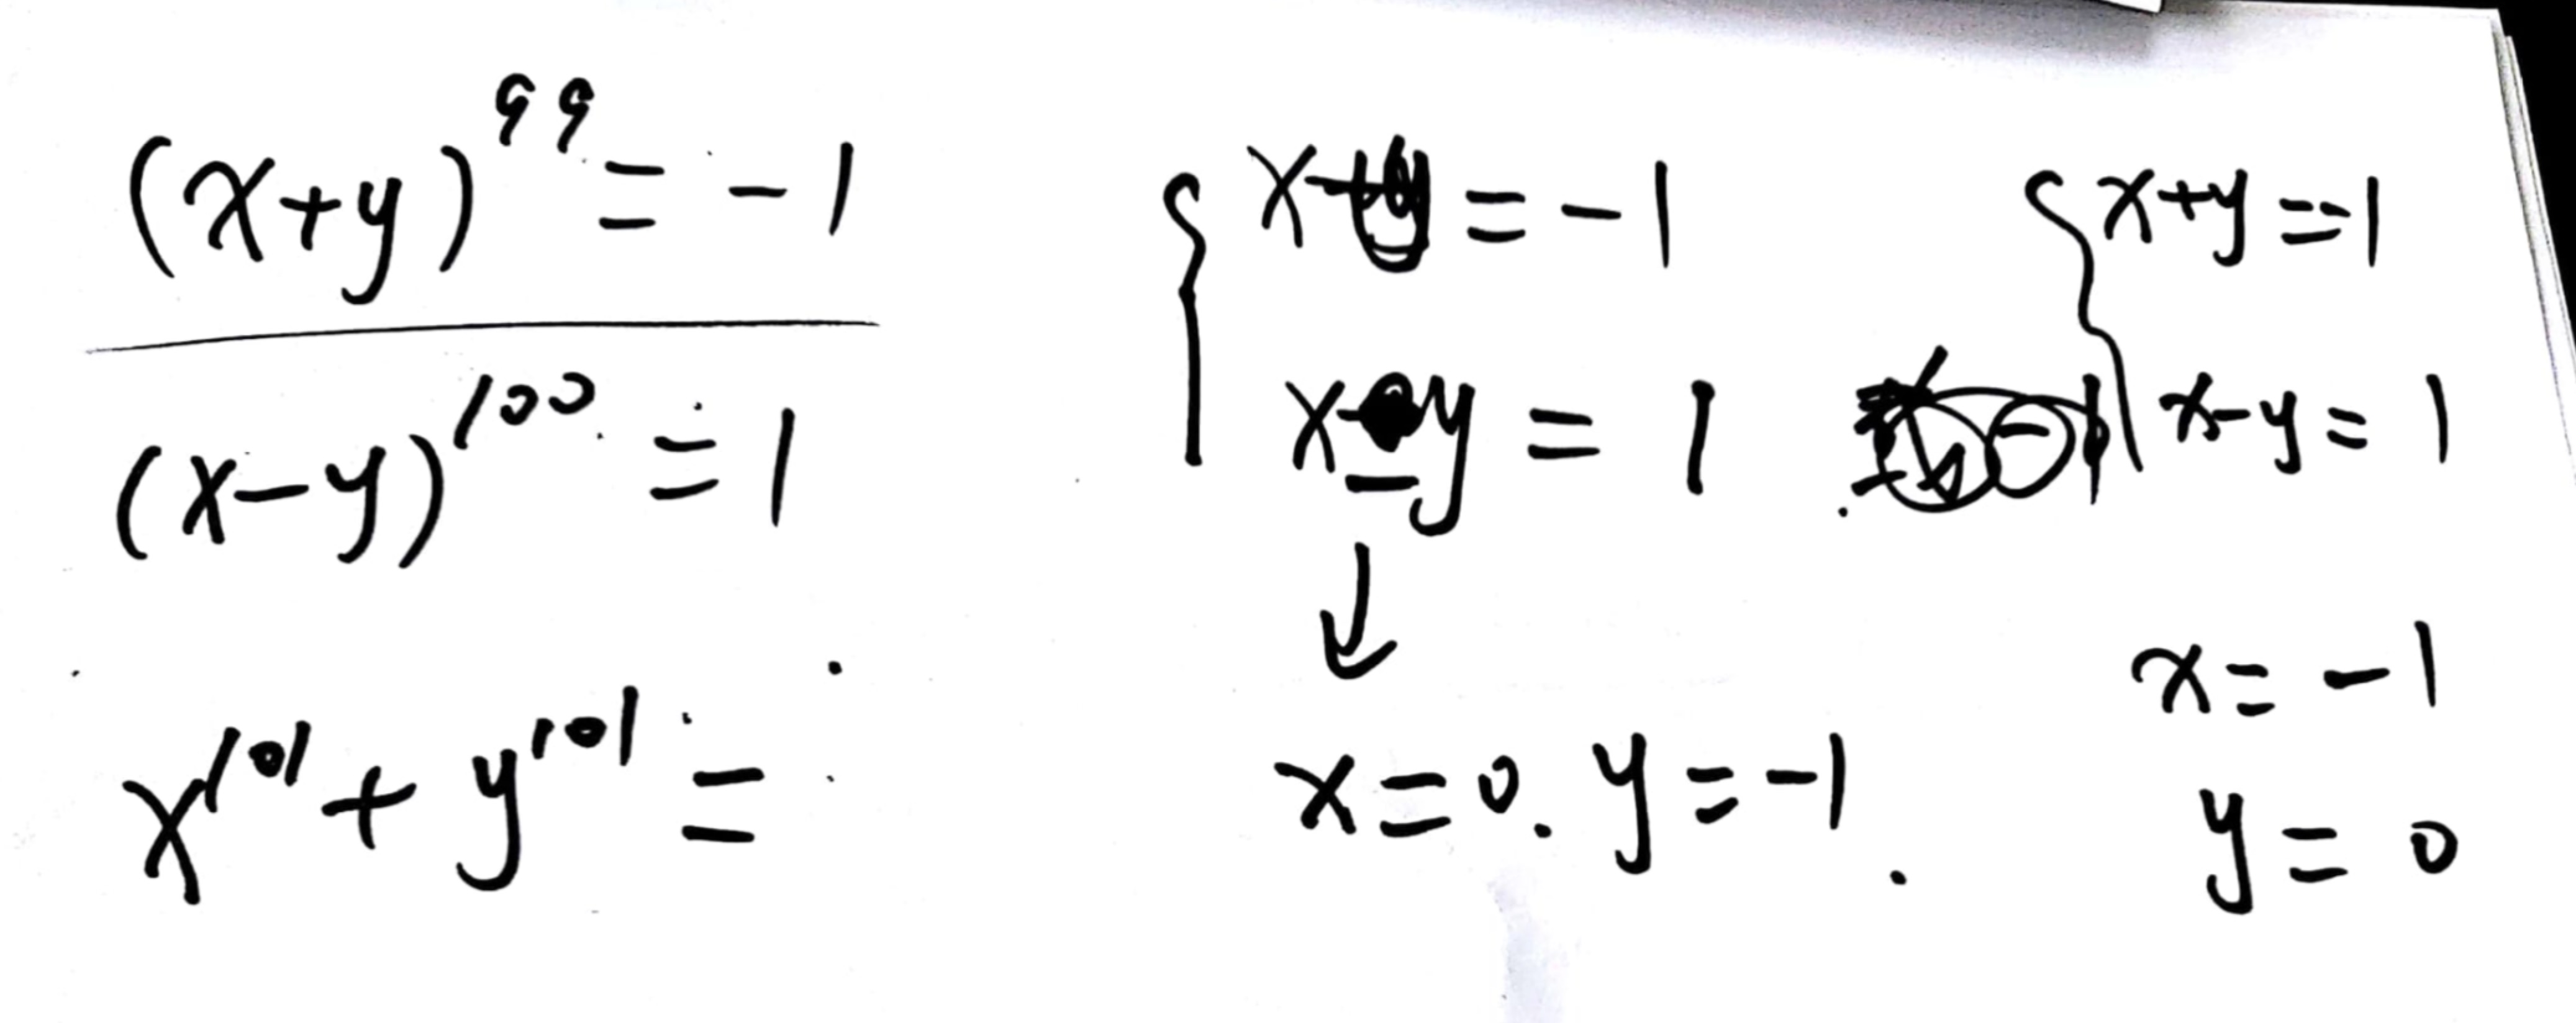 (x+y)^99 = -1
(x-y)^100 = 1
x^101 + y^101 =
x+y = -1
x-y = 1
↓
x=0. y=-1.
x+y=1
x-y=1
x=-1
y=0